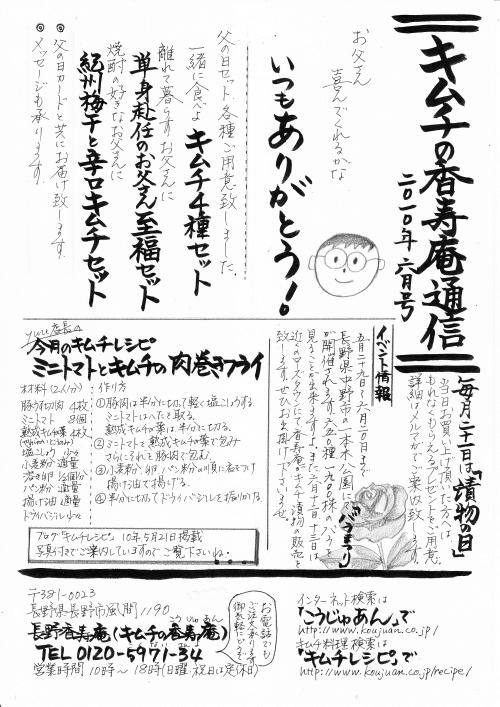 キムチの香寿庵通信
二〇一〇年 六月号
お父さん
喜んでくれるかな
いつもありがとう!
父の日セット各種ご用意致しました。
一緒に食べよ キムチ4種セット
離れて暮らすお父さんに
単身赴任のお父さん至福セット
焼酎の好きなお父さんに
紀州梅干と辛口キムチセット
◎父の日カードと共にお届け致します。
◎メッセージも承ります。
毎月二十一日は「漬物の日」
当日お買上げ頂いた方へは、
もれなくもらえるプレゼントをご用意。
詳細はメルマガでご案内致します。
イベント情報
五月二十九日〜六月二十日まで
長野県中野市の一本木公園にて
バラまつり
が開催されます。
見ることが出来ますよ。また六月十二、十三日は
近くのサスタウンにて香寿庵のキムチ漬物の販売を
致します。ぜひお出掛け下さいませ。
店長の
今月のキムチレシピ
ミニトマトとキムチの肉巻きフライ
材料(2人分)
豚うす切肉 4枚
ミニトマト 8個
熟成キムチの葉 4枚
塩こしょう 少々
小麦粉 適量
溶き卵 1/2個分
パン粉 適量
揚げ油 適量
ドライバジル 少々
作り方
①豚肉は半分に切って軽く塩こしょうする。
ミニトマトはへたを取る。
熟成キムチの葉は半分に切る。
②ミニトマトを熟成キムチの葉で包み
さらにそれを豚肉で包む。
③小麦粉、卵、パン粉の順に衣をつけ
揚げ油で揚げる。
④半分に切ってドライバジルを振りかける。
ブログ"キムチレシピ" 10年5月21日掲載
写真付きでご案内していますのでご覧下さいね。
〒381-0023
長野県長野市風間1190
長野香寿庵(キムチの香寿庵)
こうじゅあん
TEL 0120-5971-34
営業時間 10時〜18時(日曜・祝日は定休)
お電話でも
ご注文承ります
御気軽にどうぞ
インターネット検索は
「こうじゅあん」で
http://www.koujuan.co.jp/
キムチ料理検索は
「キムチレシピ」で
http://www.koujuan.co.jp/recipe/